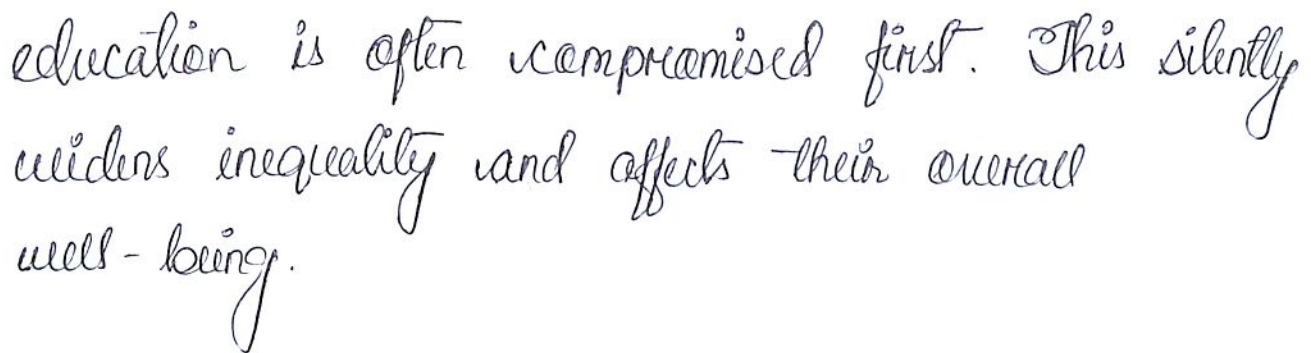 education is often compromised first. This silently
widens inequality and affects their overall
well-being.